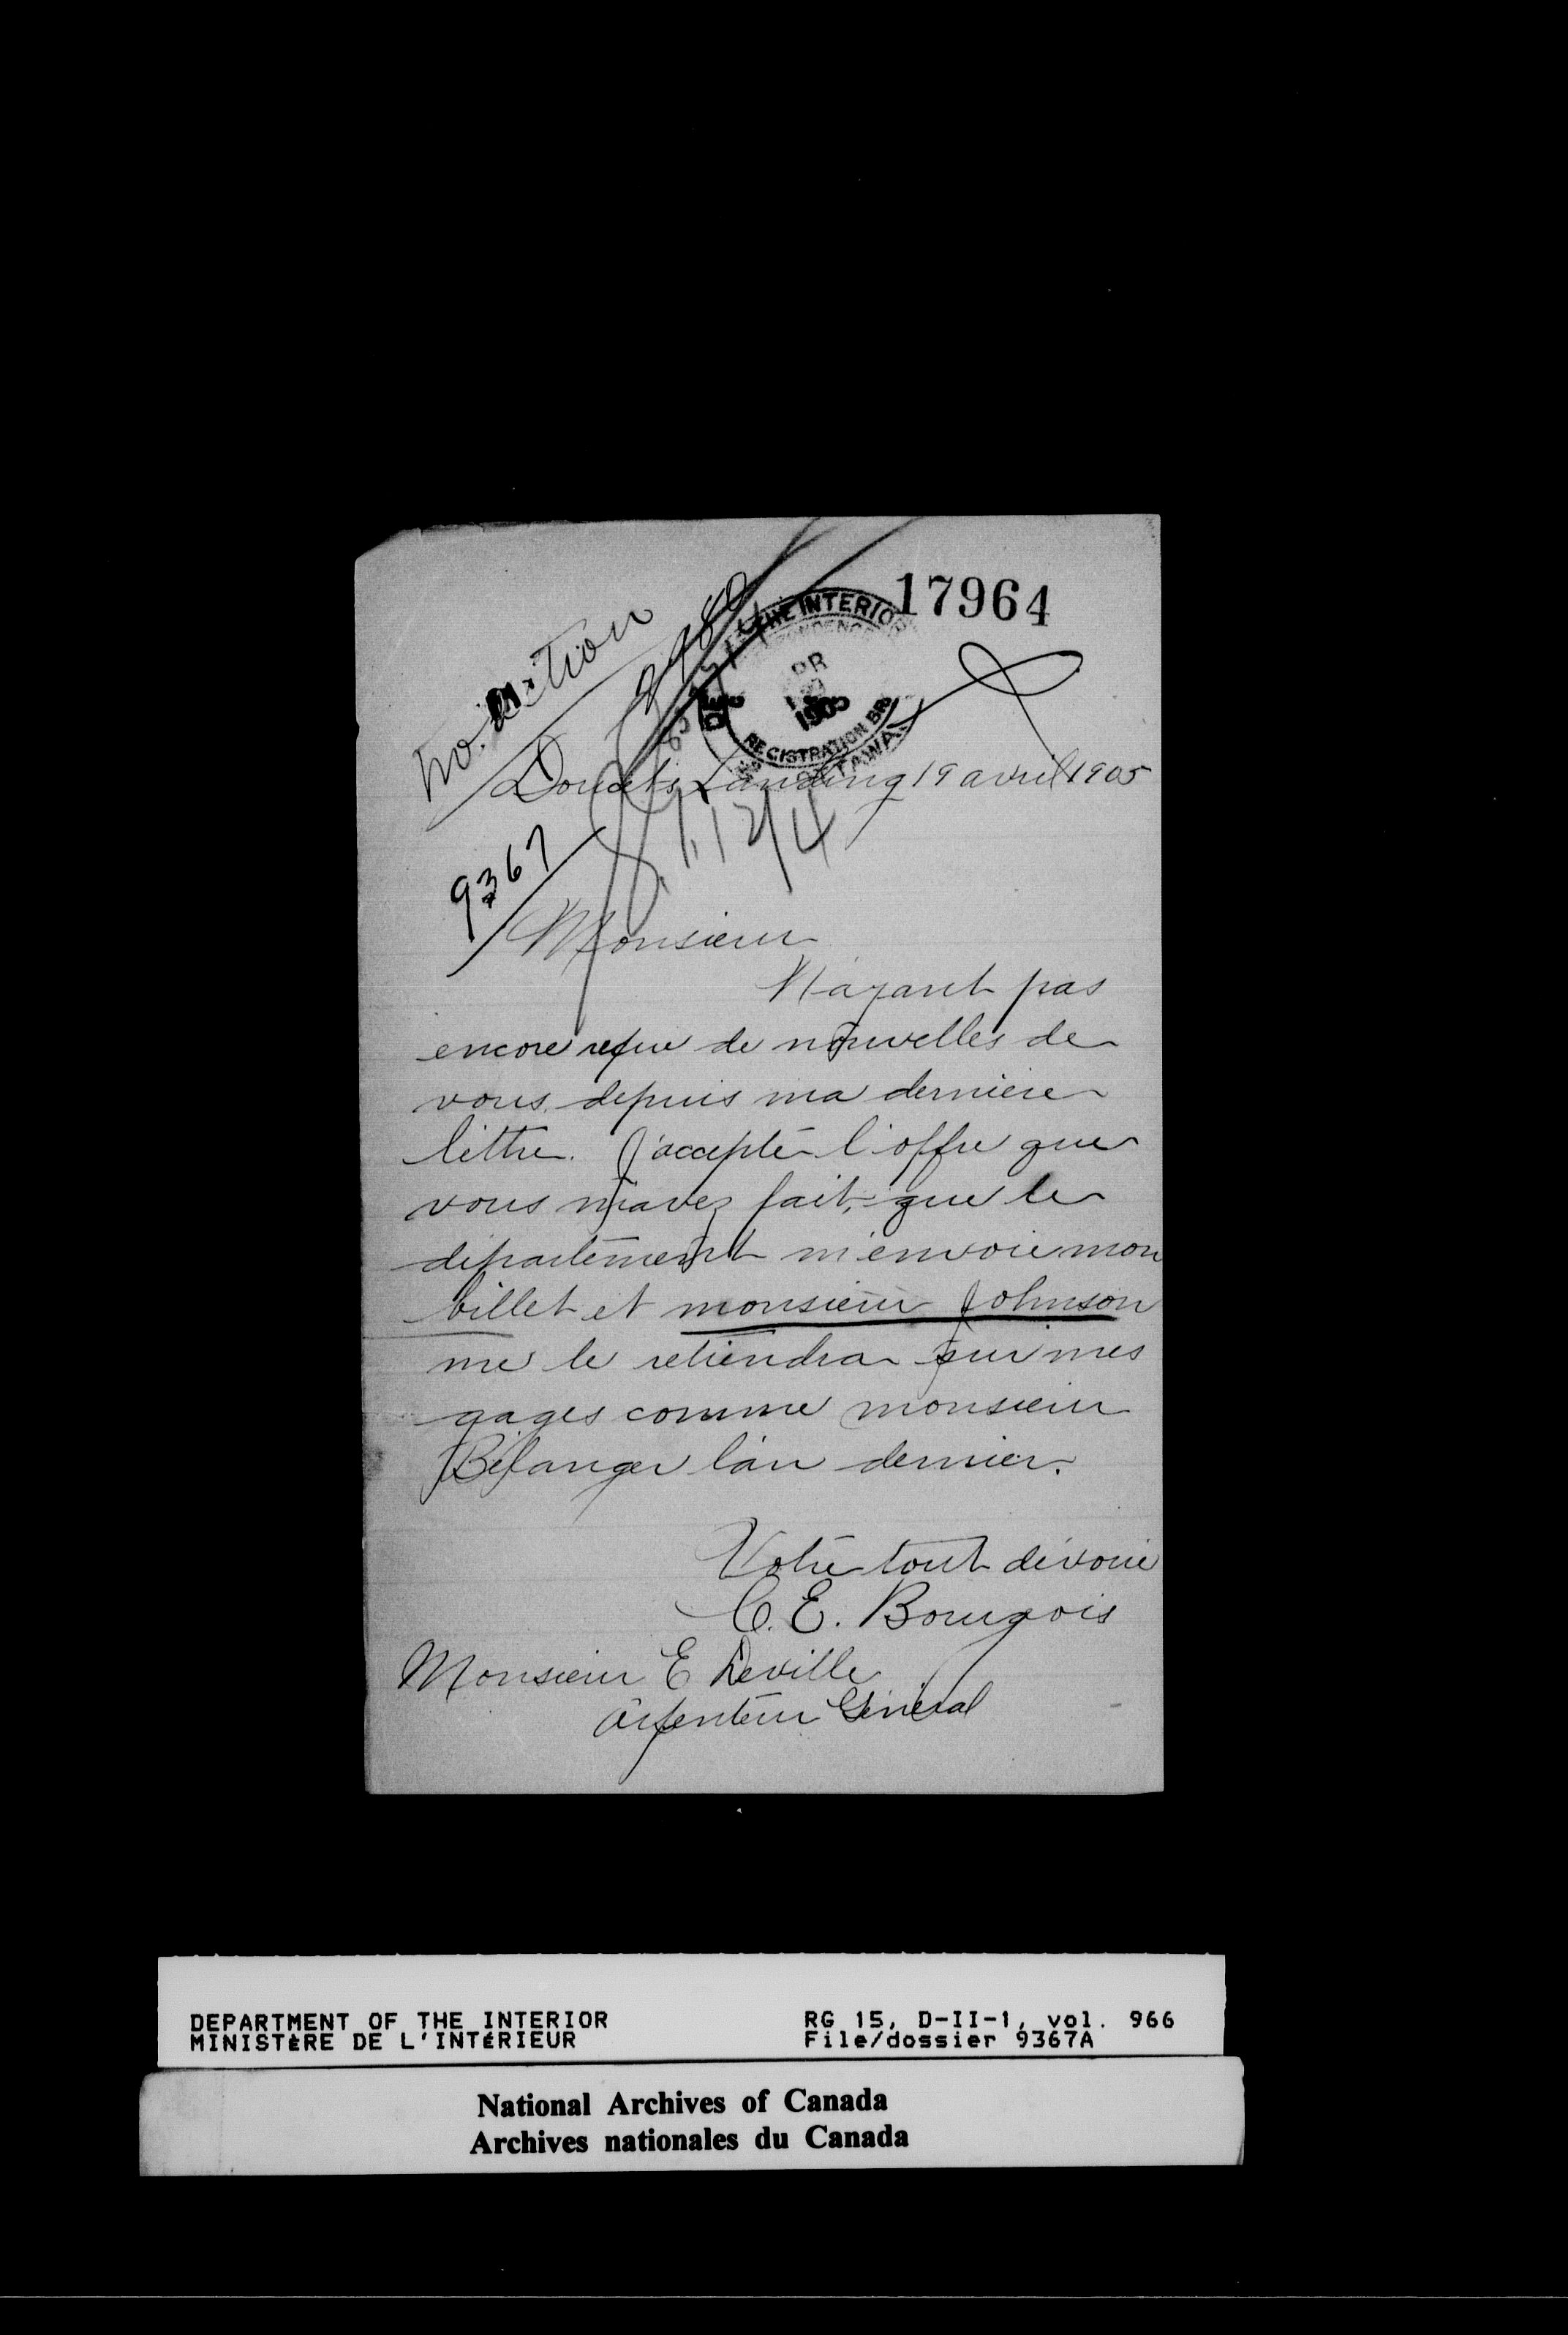 17964
no action
THE INTERIOR
1905
REGISTRATION BR
OTTAWA
Doucets Landing 19 avril 1905
9367
Monsieur
N'ayant pas
encore reçue de nouvelles de
vous depuis ma derniere
lettre. J'accepte l'offre que
vous m'avez fait, que le
département m'envoie mon
billet et monsieur Johnson
me le retiendra sur mes
gages comme monsieur
Bélanger l'an dernier.
Votre tout dévoué
C. E. Bourgois
Monsieur E Deville
Arpenteur Général
DEPARTMENT OF THE INTERIOR RG 15, D-II-1, vol. 966
MINISTÈRE DE L'INTÉRIEUR File/dossier 9367A
National Archives of Canada
Archives nationales du Canada